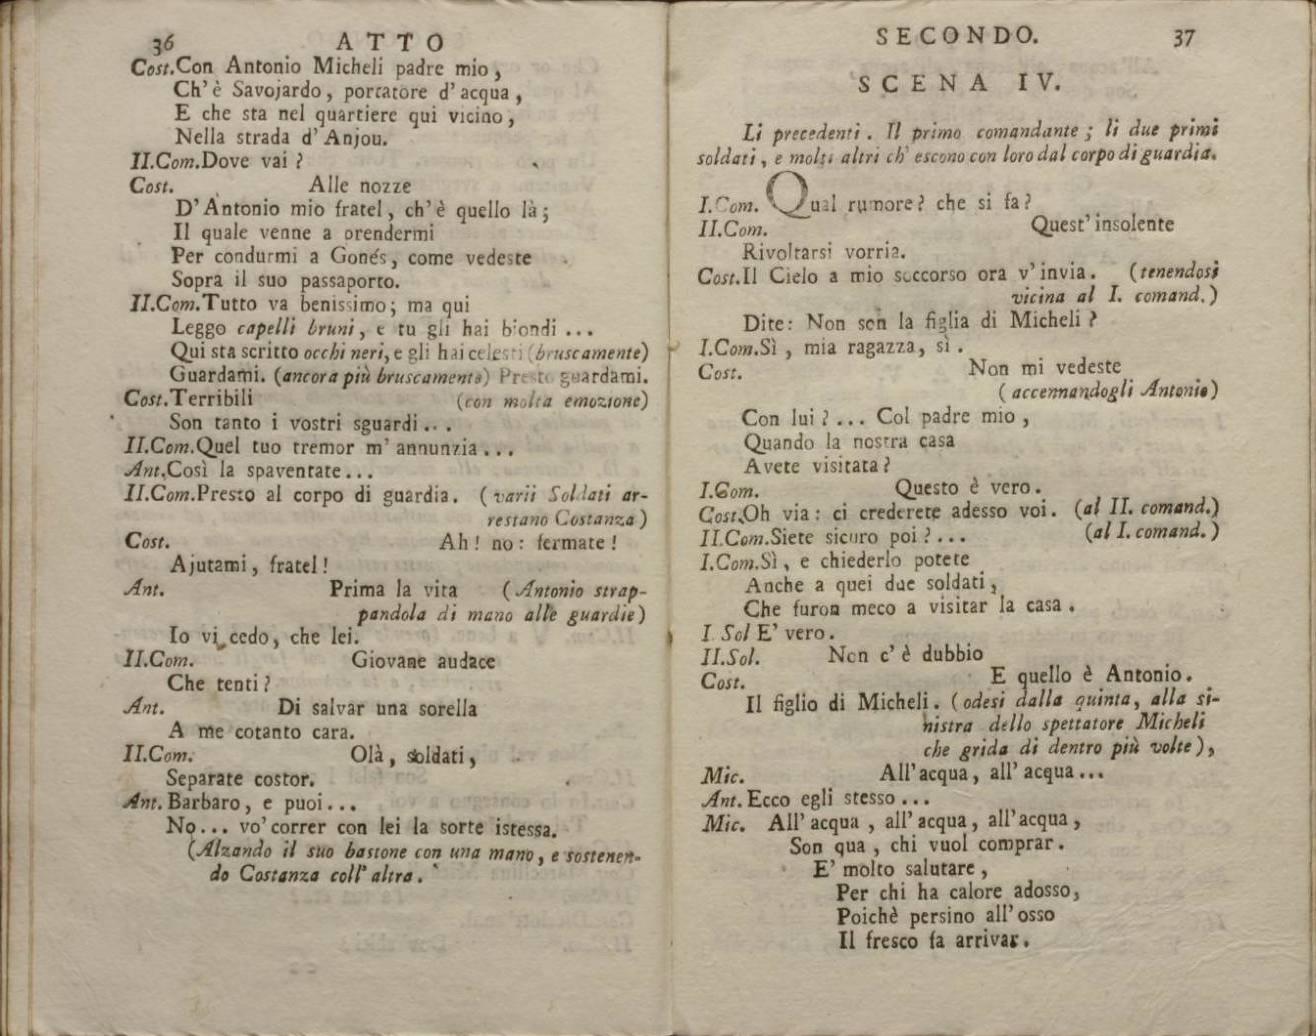 36 ATTO
Cost. Con Antonio Micheli padre mio,
Ch'è Savojardo, portatore d'acqua,
E che sta nel quartiere qui vicino,
Nella strada d'Anjou.
II.Com. Dove vai?
Cost. Alle nozze
D'Antonio mio fratel, ch'è quello là;
Il quale venne a prendermi
Per condurmi a Gonés, come vedeste
Sopra il suo passaporto.
II.Com. Tutto va benissimo; ma qui
Leggo capelli bruni, e tu gli hai biondi ...
Qui sta scritto occhi neri, e gli hai celesti (bruscamente)
Guardami. (ancora più bruscamente) Presto guardami.
Cost. Terribili (con molta emozione)
Son tanto i vostri sguardi...
II.Com. Quel tuo tremor m'annunzia...
Ant. Così la spaventate...
II.Com. Presto al corpo di guardia. (varii Soldati ar-
restano Costanza)
Cost. Ah! no: fermate!
Ajutami, fratel!
Ant. Prima la vita (Antonio strap-
pandola di mano alle guardie)
Io vi cedo, che lei.
II.Com. Giovane audace
Che tenti?
Ant. Di salvar una sorella
A me cotanto cara.
II.Com. Olà, soldati,
Separate costor.
Ant. Barbaro, e puoi...
No... vo'correr con lei la sorte istessa.
(Alzando il suo bastone con una mano, e sostenen-
do Costanza coll'altra.
SECONDO. 37
SCENA IV.
Li precedenti. Il primo comandante; li due primi
soldati, e molti altri ch'escono con loro dal corpo di guardia.
I.Com. Qual rumore? che si fa?
II.Com. Quest'insolente
Rivoltarsi vorria.
Cost. Il Cielo a mio soccorso ora v'invia. (tenendosi
vicina al I. comand.)
Dite: Non son la figlia di Micheli?
I.Com. Sì, mia ragazza, sì.
Cost. Non mi vedeste
(accennandogli Antonio)
Con lui?... Col padre mio,
Quando la nostra casa
Avete visitata?
I.Com. Questo è vero.
Cost. Oh via: ci crederete adesso voi. (al II. comand.)
II.Com. Siete sicuro poi?... (al I. comand.)
I.Com. Sì, e chiederlo potete
Anche a quei due soldati,
Che furon meco a visitar la casa.
I. Sol E' vero.
II.Sol. Non c'è dubbio
Cost. E quello è Antonio.
Il figlio di Micheli. (odesi dalla quinta, alla si-
nistra dello spettatore Micheli
che grida di dentro più volte),
Mic. All'acqua, all'acqua...
Ant. Ecco egli stesso...
Mic. All'acqua, all'acqua, all'acqua,
Son qua, chi vuol comprar.
E' molto salutare,
Per chi ha calore adosso,
Poichè persino all'osso
Il fresco fa arrivar.